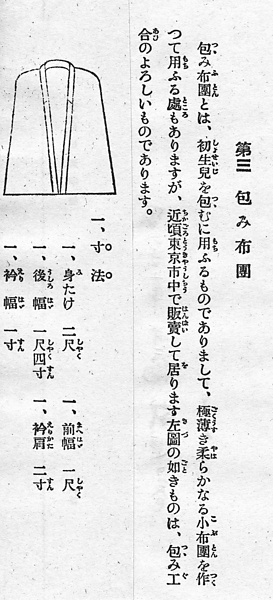 第三　包み布團
包み布團とは、初生兒を包むに用ふるものでありまして、極薄き柔らかなる小布團を作
つて用ふる處もありますが、近頃東京市中で販賣して居ります左圖の如きものは、包み工
合のよろしいものであります。
一、寸法
一、身たけ　二尺　一、前幅　一尺
一、後幅　一尺四寸　一、衿肩　二寸
一、衿幅　一寸